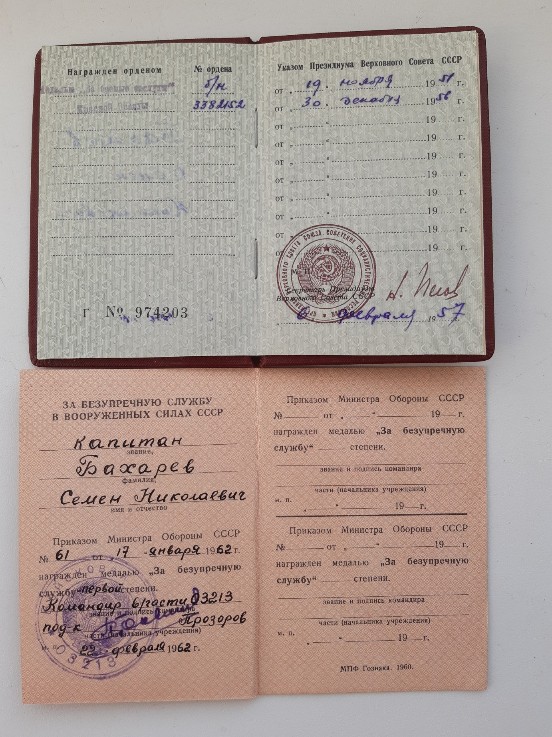 Награжден орденом № ордена
Медалью „За боевые заслуги“ б/н
Красной Звезды 3382152
г № 974203
Указом Президиума Верховного Совета СССР
от „ 19 „ ноября 1951 г.
от „ 30 „ декабря 1956 г.
от „ „ 19 г.
от „ „ 19 г.
от „ „ 19 г.
от „ „ 19 г.
от „ „ 19 г.
от „ „ 19 г.
от „ „ 19 г.
от „ „ 19 г.
Секретарь Президиума
Верховного Совета СССР
„ 6 „ февраля 1957
ЗА БЕЗУПРЕЧНУЮ СЛУЖБУ
В ВООРУЖЕННЫХ СИЛАХ СССР
капитан
звание,
Бахарев
фамилия,
Семен Николаевич
имя и отчество
Приказом Министра Обороны СССР
№ 61 от „ 17 „ января 1962 г.
награжден медалью „За безупречную
службу“ первой степени.
Командир в/части 03213
звание и подпись командира
подп-к Прозоров
части (начальника учреждения)
„22„ февраля 1962 г.
03213
Приказом Министра Обороны СССР
№ от „ “ 19 г.
награжден медалью „За безупречную
службу“ степени.
звание и подпись командира
части (начальника учреждения)
м. п. „ “ 19 г.
Приказом Министра Обороны СССР
№ от „ “ 19 г.
награжден медалью „За безупречную
службу“ степени.
звание и подпись командира
части (начальника учреждения)
м. п. „ “ 19 г.
МПФ Гознака. 1960.